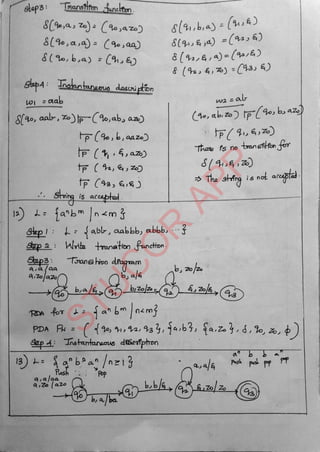 Step3: Transition function.
δ(q0,a,z0) = (q0,az0)
δ(q0,a,a) = (q0,aa)
δ(q0,b,a) = (q1,ε)
δ(q1,b,a) = (q1,ε)
δ(q1,ε,a) = (q2,ε)
δ(q2,ε,a) = (q2,ε)
δ(q2,ε,z0) = (q3,ε)
Step4: Instantaneous description
w1 = aab
δ(q0, aab, z0) ⊢p (q0, ab, az0)
⊢p (q0, b, aaz0)
⊢p (q1, ε, az0)
⊢p (q2, ε, z0)
⊢p (q3, ε, ε)
∴ String is accepted.
w2 = ab
(q0, ab, z0) ⊢p (q0, b, az0)
⊢p (q1, ε, z0)
There is no transition for
δ(q1, ε, z0)
⇒ The string is not accepted.
12) L = {a^n b^m | n<m}
Step 1: L = {abb, aabbb, abbb, ...}
Step 2: Write transition function
Step3: Transition diagram
a,a/aa
a,z0/az0
b,a/ε
b,z0/z0
q0 b,a/ε q1 b,z0/z0 q2 ε,z0/z0 q3
PDA for L = {a^n b^m | n<m}
PDA = ({q0,q1,q2,q3}, {a,b}, {a,z0}, δ, q0, z0, φ)
Step 4: Instantaneous description
13) L = {a^n b^2 a^n | n≥1}
Push Pop
a^n b b a^n
Push push pop pop
a,a/aa
a,z0/az0
a,a/ε
q0 b,a/ba q1 b,b/ε q2 ε,z0/z0 q3
STUCOR APP